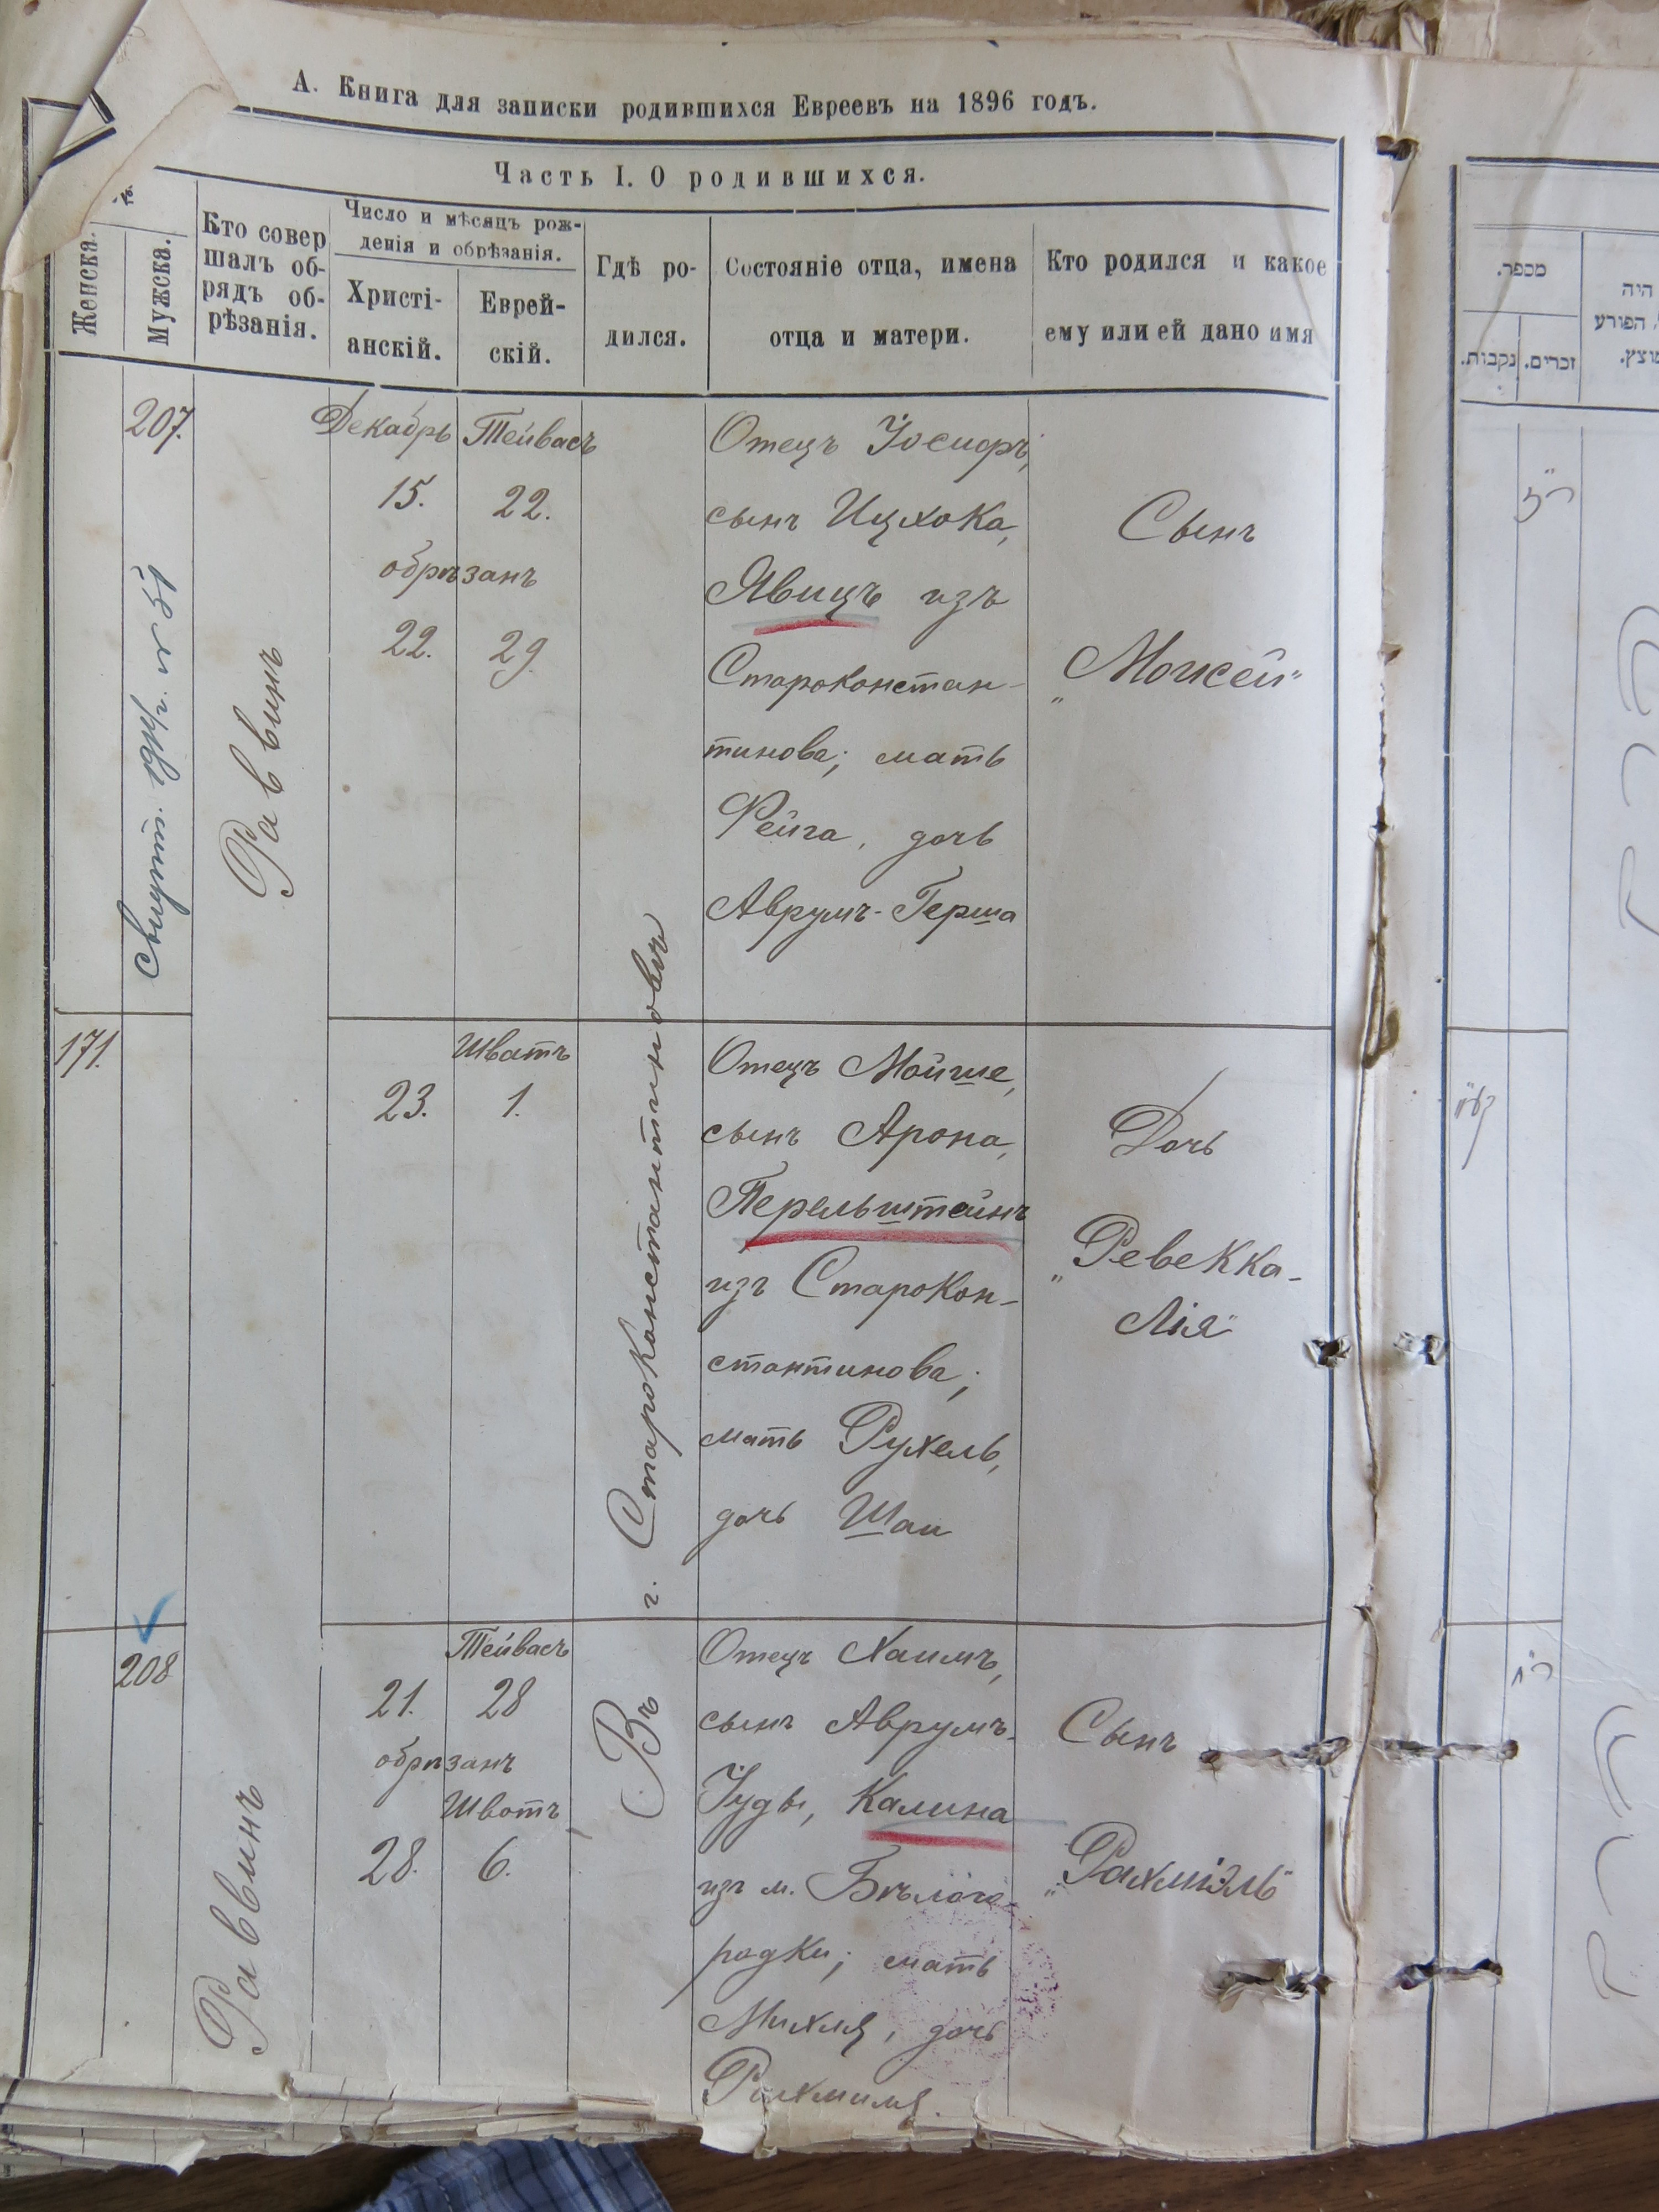 А. Книга для записки родившихся Евреевъ на 1896 годъ.
Часть I. О родившихся.
Женска.
Мужска.
Кто совер
шалъ об-
рядъ об-
рѣзанія.
Число и мѣсяцъ рож-
денія и обрѣзанія.
Христі-
анскій.
Еврей-
скій.
Гдѣ ро-
дился.
Состояніе отца, имена
отца и матери.
Кто родился и какое
ему или ей дано имя
207.
Раввинъ
Декабрь
15.
обрѣзанъ
22.
Тейвасъ
22.
29.
Отецъ Іосифъ,
сынъ Ицхока,
Явицъ изъ
Староконстан-
тинова; мать
Фейга, дочь
Аврумъ-Герша
Сынъ
„Моисей“
171.
23.
Шватъ
1.
Въ г. Староконстантиновѣ
Отецъ Мойше,
сынъ Арона,
Перельштейнъ
изъ Старокон-
стантинова;
мать Рухель,
дочь Шаи
Дочь
„Ревекка-
Лія“
208
Раввинъ
21.
обрѣзанъ
28.
Тейвасъ
28
Шватъ
6.
Отецъ Хаимъ,
сынъ Аврумъ-
Іуды, Калина
изъ м. Бѣлого-
родки; мать
Михля, дочь
Рахмиля.
Сынъ
„Рахміэль“
מספר.
זכרים.
נקבות.
היה
הפורע
ר״ז
קע״א
ר״ח